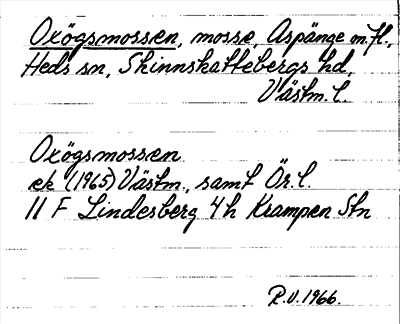 Oxögsmossen, mosse, Aspänge m.fl.,
Heds sn, Skinnskattebergs hd,
Västm. l.
Oxögsmossen
ek (1965) Västm., samt Ör. l.
11 F Lindesberg 4 h Krampen Stn
R.V. 1966.